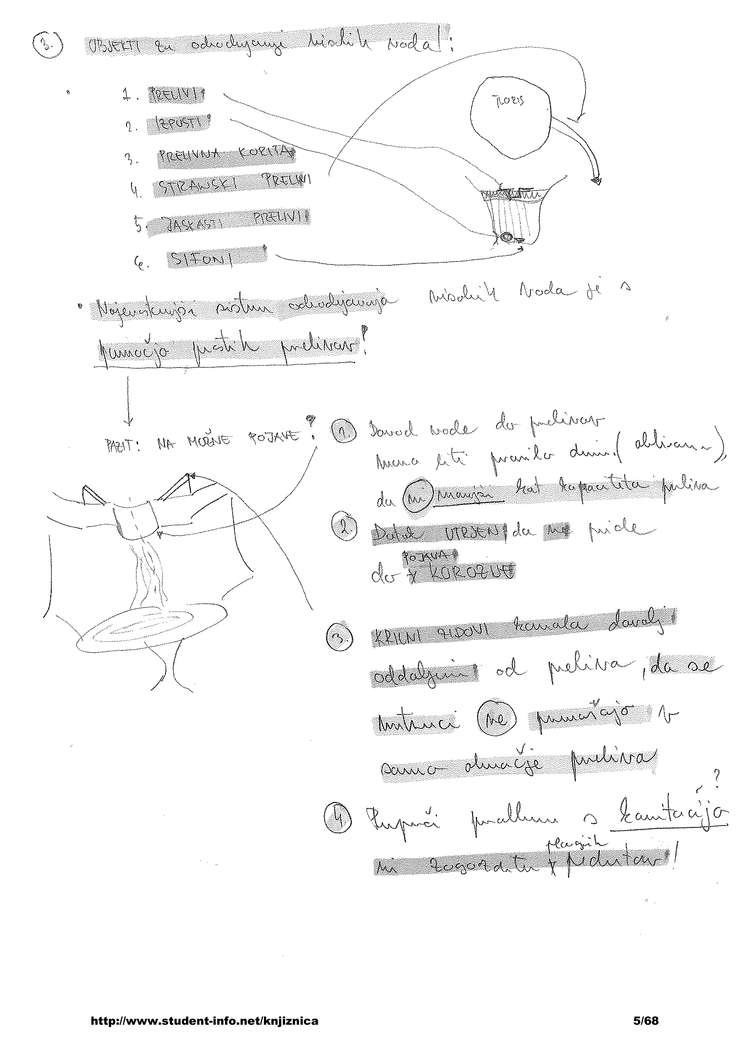 3. OBJEKTI za odvodnjavanje visokih voda!:
1. PRELIVI
TLORIS
2. IZPUSTI
3. PRELIVNA KORITA
4. STRANSKI PRELIVI
5. JAŠKASTI PRELIVI
6. SIFONI
• sistem odvodnjavanja visokih voda je s
pomočjo prostih prelivov!
PAZIT: NA MOŽNE POJAVE?
1. Dovod vode do prelivov
mora biti pravilno dim.
da ni manjši kot kapaciteta preliva
2. UTRJEN, da ne pride
do POJAVA KOROZIJE
3. KRILNI ZIDOVI kanala dovolj
oddaljeni od preliva, da se
vrtinci ne prenašajo v
samo območje preliva
4. problem s kavitacijo ?
ni zagozditev plavajočih predmetov!
http://www.student-info.net/knjiznica
5/68